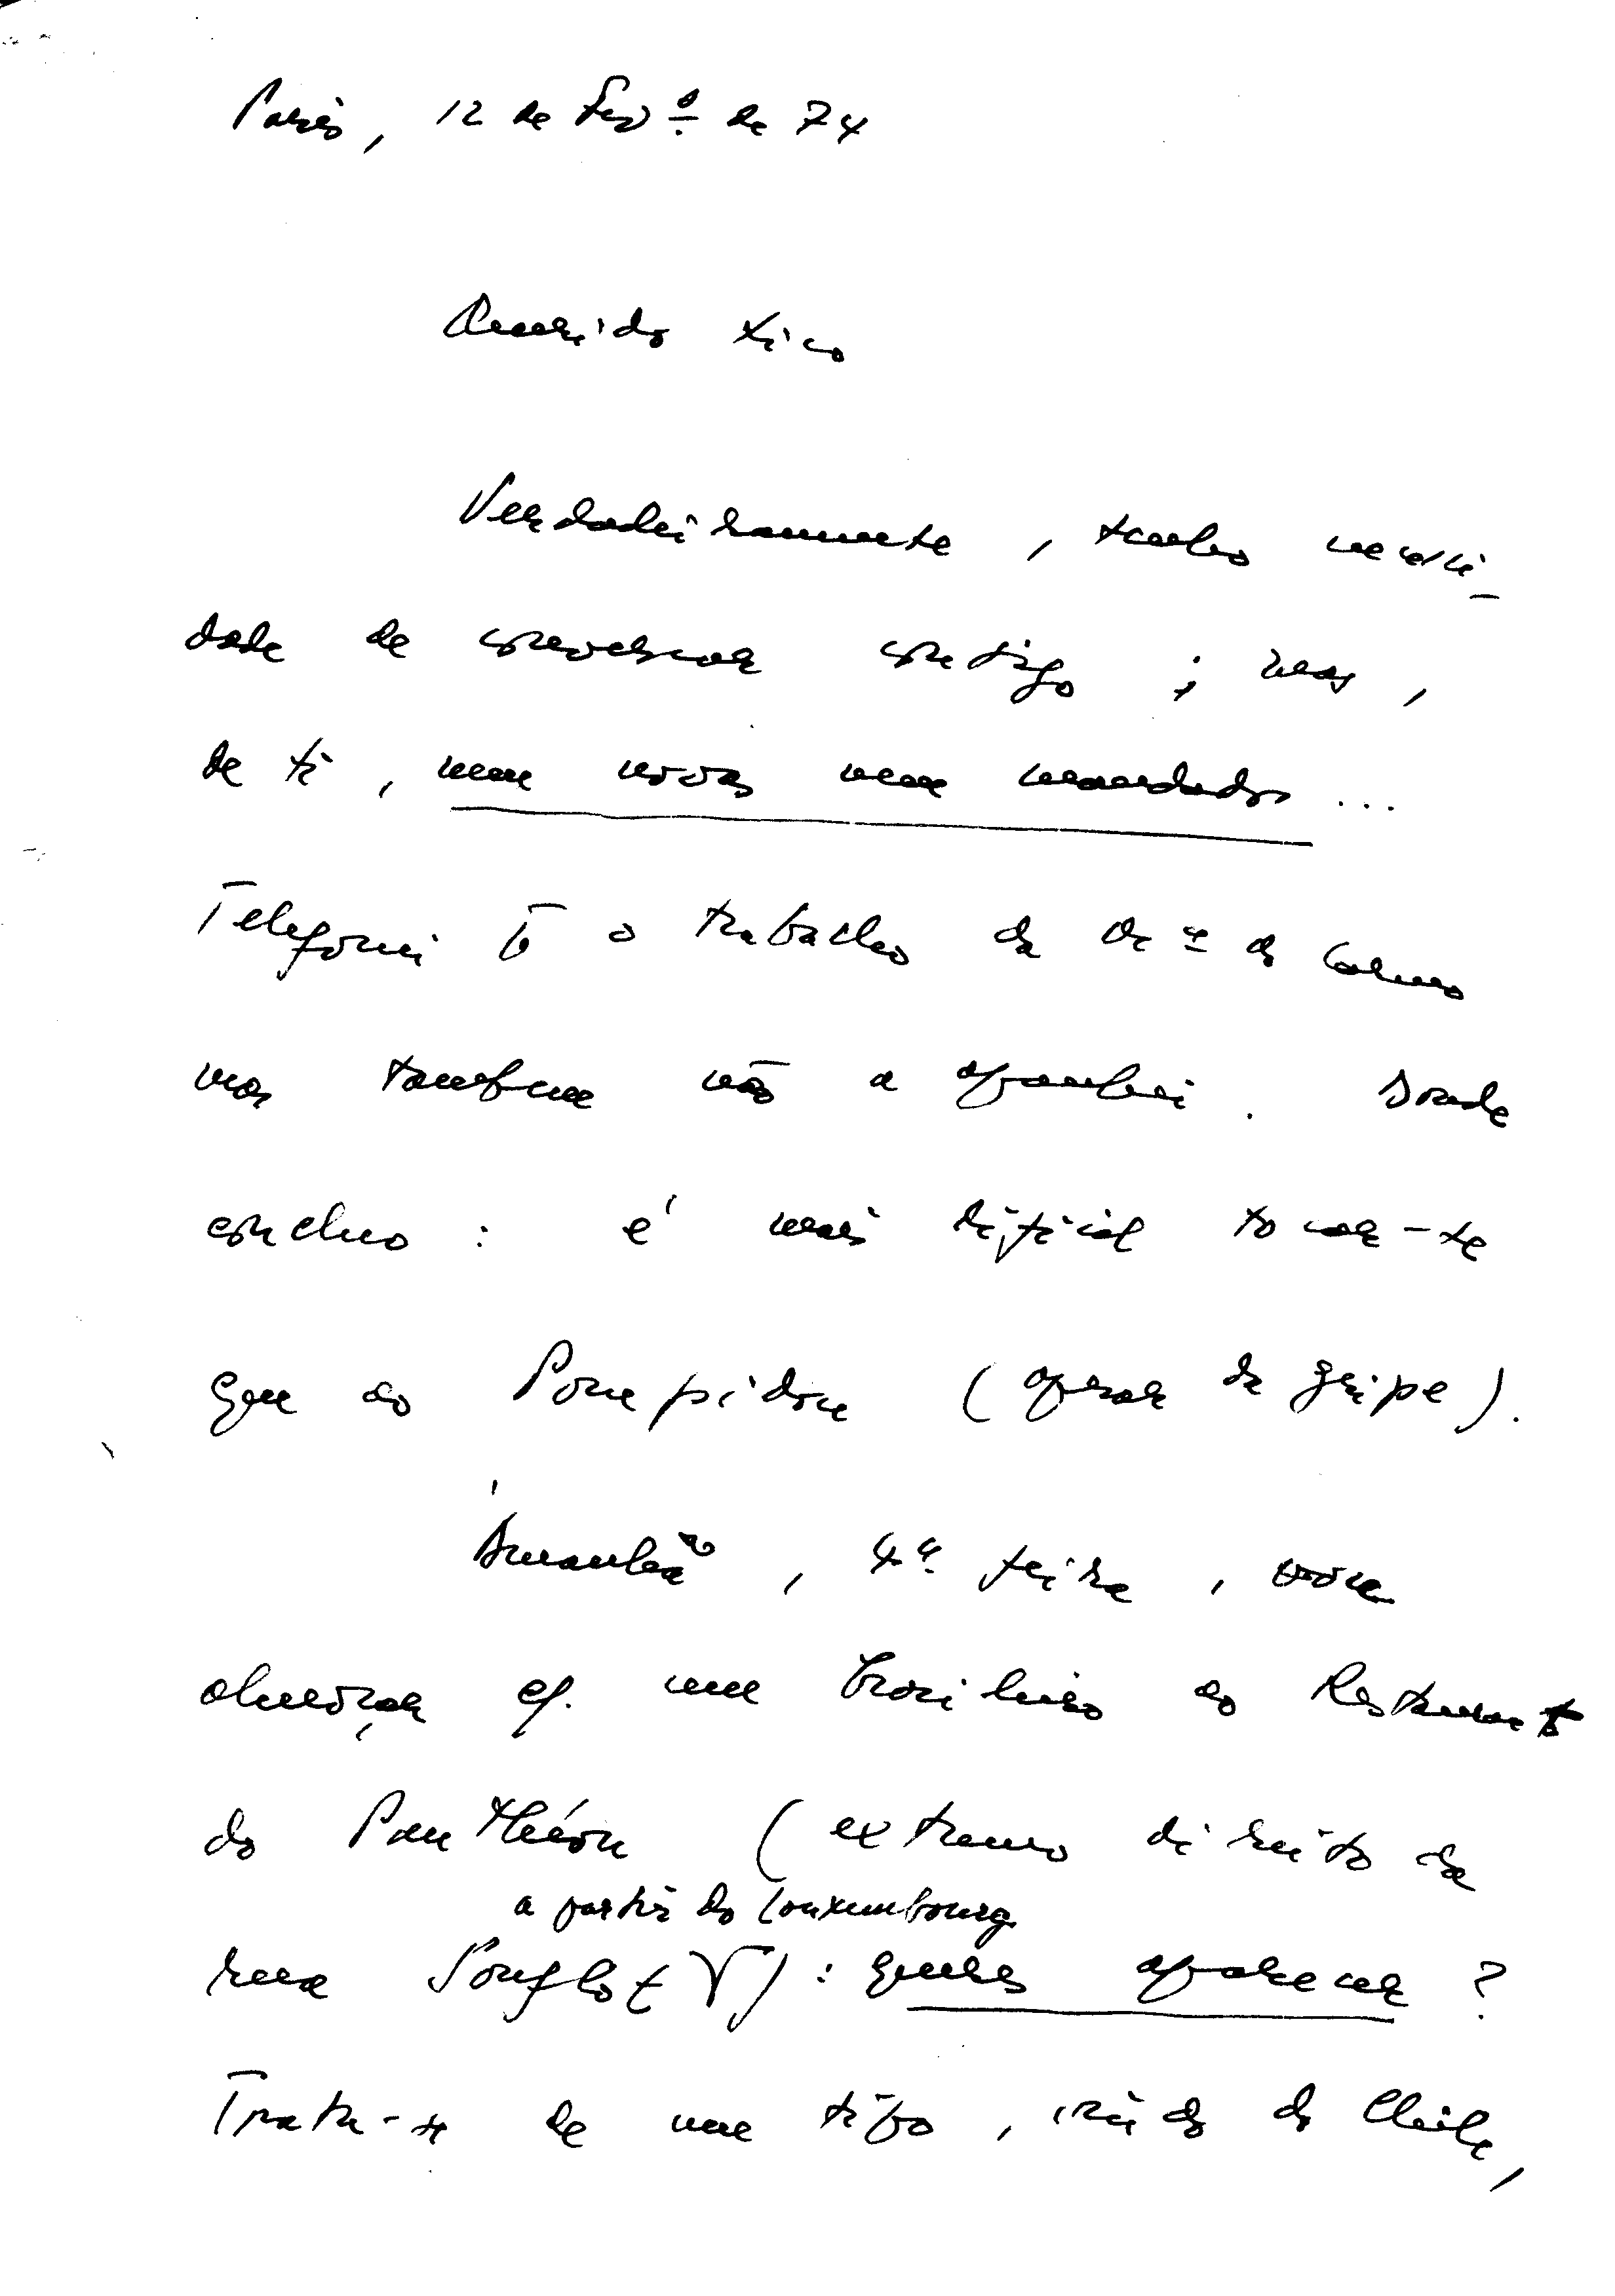 Paris, 12 de Fevº de 74
Querido Xico
Verdadeiramente, tenho necessi-
dade de conversar contigo; mas,
de ti, nem novas nem mandados...
Telefonei p o trabalho da do Carmo
mas também não a apanhei. Donde
concluo: é mais difícil tocar-te
que ao Pompidou (apesar da gripe).
Amanhã, 4ª feira, vou
almoçar c/. um brasileiro ao Restaurant
do Panthéon (extremo direito da
a partir do Louxembourg
rua Soufflot): queres aparecer?
Trata-se de um tipo, vindo do Chile,